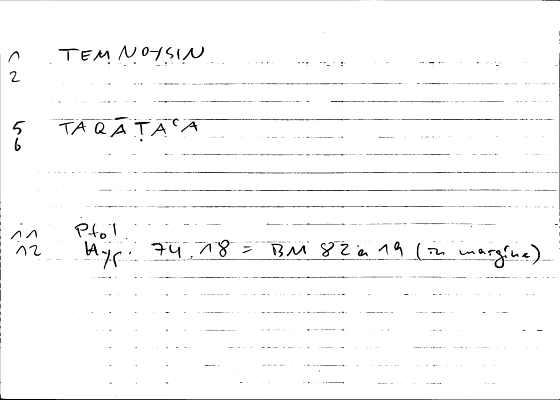 1 TEMNOYSIN
2
5 TAQĀṬAʿA
6
11 Ptol.
12 Hyp. 74.18 = BM 82a 19 (in margine)